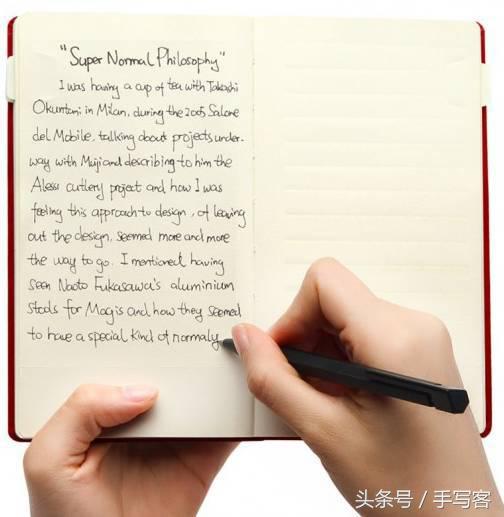 "Super Normal Philosophy"
I was having a cup of tea with Takashi
Okuntani in Milan, during the 2005 Salone
del Mobile, talking about projects under-
way with Muji and describing to him the
Alessi cutlery project and how I was
feeling this approach to design, of leaving
out the design, seemed more and more
the way to go. I mentioned having
seen Naoto Fukasawa's aluminium
stools for Magis and how they seemed
to have a special kind of normaly
头条号 / 手写客